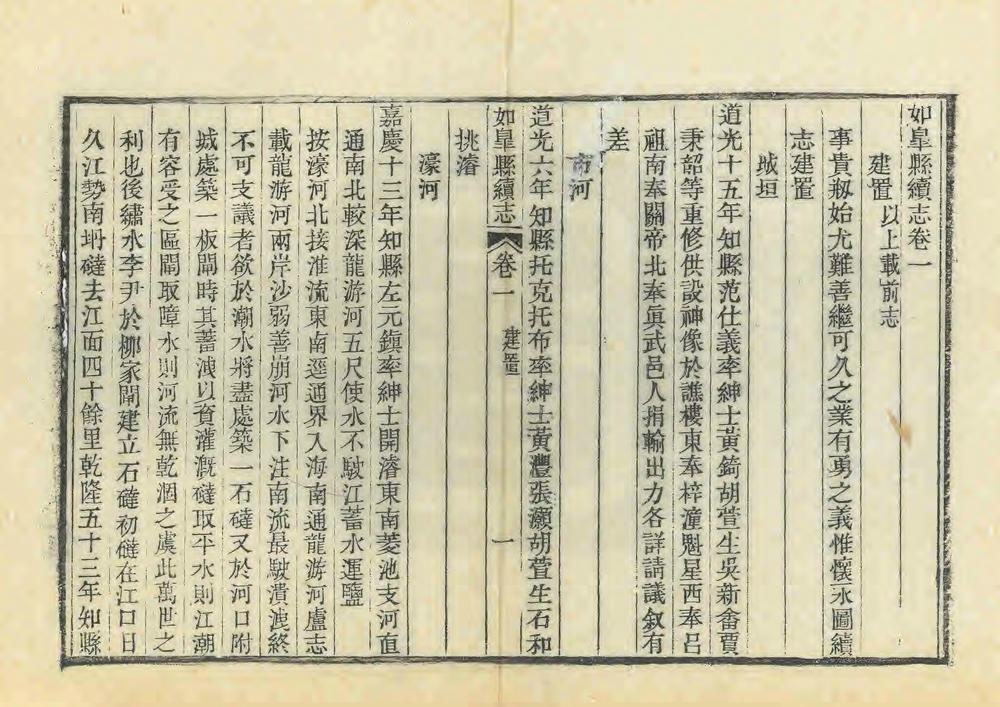 如臯縣續志卷一
建置以上載前志
事貴刱始尤難善繼可久之業有勇之義惟懷永圖續
志建置
城垣
道光十五年知縣范仕義率紳士黃錡胡萱生吳新畬賈
秉韶等重修供設神像於譙樓東奉梓潼魁星西奉呂
祖南奉關帝北奉眞武邑人捐輸出力各詳請議叙有
差
市河
道光六年知縣托克托布率紳士黃灃張灝胡萱生石和
如臯縣續志 卷一 建置 一
挑濬
濠河
嘉慶十三年知縣左元鎮率紳士開濬東南菱池支河直
通南北較深龍游河五尺使水不駛江蓄水運鹽
按濠河北接淮流東南逕通界入海南通龍游河盧志
載龍游河兩岸沙弱善崩河水下注南流最駛潰洩終
不可支議者欲於潮水將盡處築一石䃮又於河口附
城處築一板閘時其蓄洩以資灌溉䃮取平水則江潮
有容受之區閘取障水則河流無乾涸之虞此萬世之
利也後繡水李尹於柳家閘建立石䃮初䃮在江口日
久江勢南坍䃮去江面四十餘里乾隆五十三年知縣